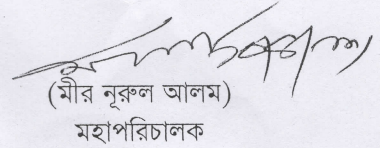 (মীর নূরুল আলম)
মহাপরিচালক